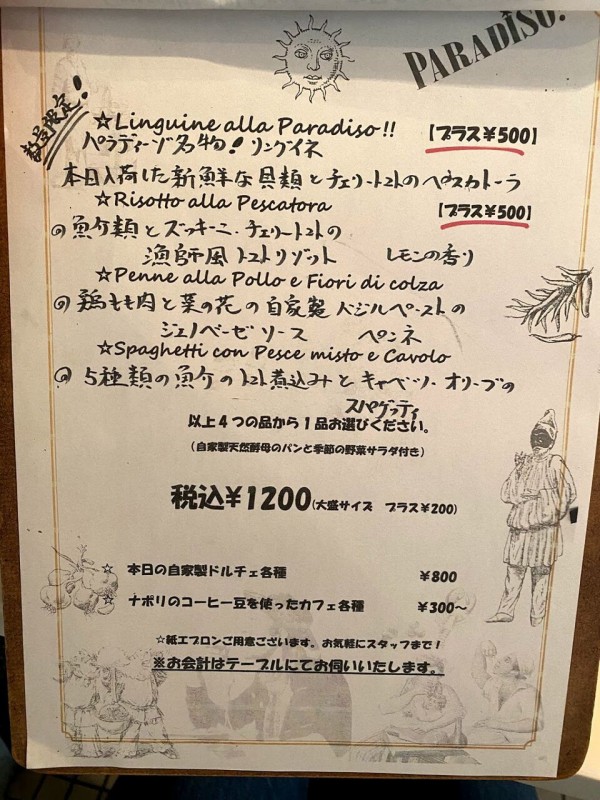 PARADISO.
数量限定!
☆Linguine alla Paradiso!! 【プラス¥500】
パラディーゾ名物! リングイネ
本日入荷した新鮮な貝類とチェリートマトのペスカトーラ
☆Risotto alla Pescatora 【プラス¥500】
◎魚介類とズッキーニ・チェリートマトの
漁師風トマトリゾット レモンの香り
☆Penne alla Pollo e Fiori di colza
◎鶏もも肉と菜の花の自家製バジルペーストの
ジェノベーゼソース ペンネ
☆Spaghetti con Pesce misto e Cavolo
◎5種類の魚介のトマト煮込みとキャベツ・オリーブの
スパゲッティ
以上4つの品から1品お選びください。
(自家製天然酵母のパンと季節の野菜サラダ付き)
税込¥1200(大盛サイズ プラス¥200)
☆ 本日の自家製ドルチェ各種 ¥800
☆ ナポリのコーヒー豆を使ったカフェ各種 ¥300~
☆紙エプロンご用意ございます。お気軽にスタッフまで!
※お会計はテーブルにてお伺いいたします。